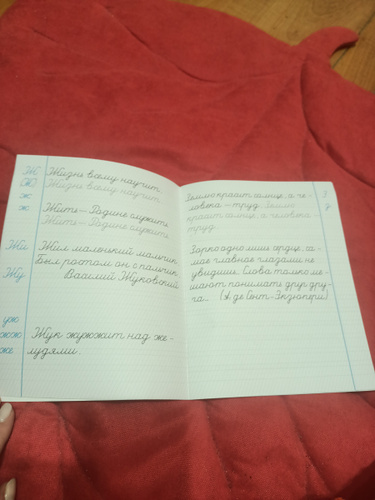 Ж Жизнь всему научит.
Ж Жизнь всему научит.
ж
ж Жить – Родине служить.
Жить – Родине служить.
Жи Жил маленький мальчик
Был ростом он с пальчик
Жу Василий Жуковский
ую
жжю Жук жужжит над же-
же лудями.
Землю красит солнце, а че- З
ловека – труд. Землю З
красит солнце, а человека –
труд.
Зорко одно лишь сердце, са-
мое главное глазами не
увидишь. Слова только ме-
шают понимать друг дру-
га.. (А де Сент-Экзюпери)